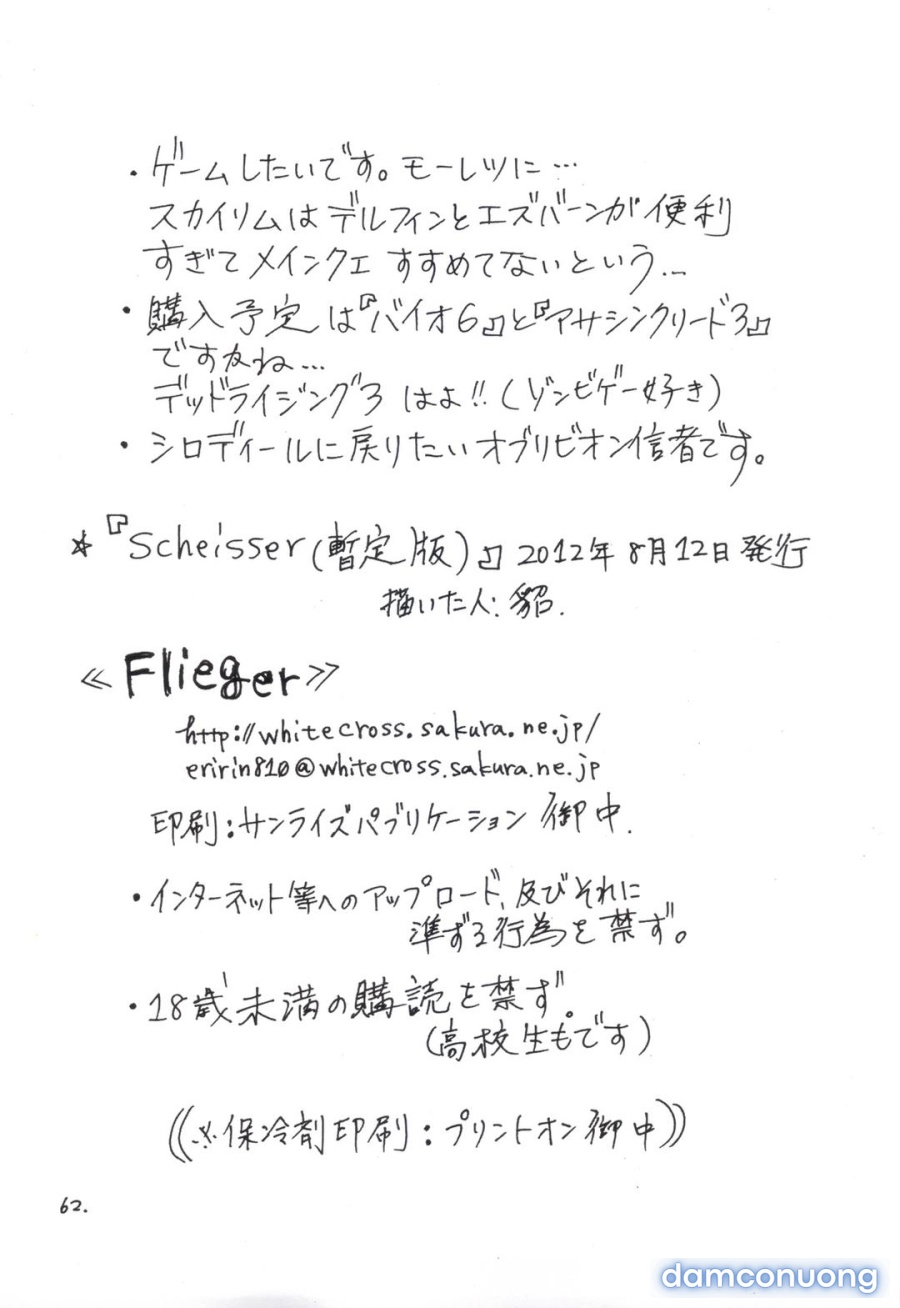 ・ゲームしたいです。モーレツに…
スカイリムはデルフィンとエズバーンが便利
すぎてメインクエすすめてないという…
・購入予定は『バイオ6』と『アサシンクリード3』
ですかね…
デッドライジング3はよ!!(ゾンビゲー好き)
・シロディールに戻りたいオブリビオン信者です。
*『Scheisser(暫定版)』2012年8月12日発行
描いた人:貂.
≪Flieger≫
http://whitecross.sakura.ne.jp/
eririn810@whitecross.sakura.ne.jp
印刷:サンライズパブリケーション御中.
・インターネット等へのアップロード、及びそれに
準ずる行為を禁ず。
・18歳未満の購読を禁ず。
(高校生もです)
((※保冷剤印刷:プリントオン御中))
62.
damconuong